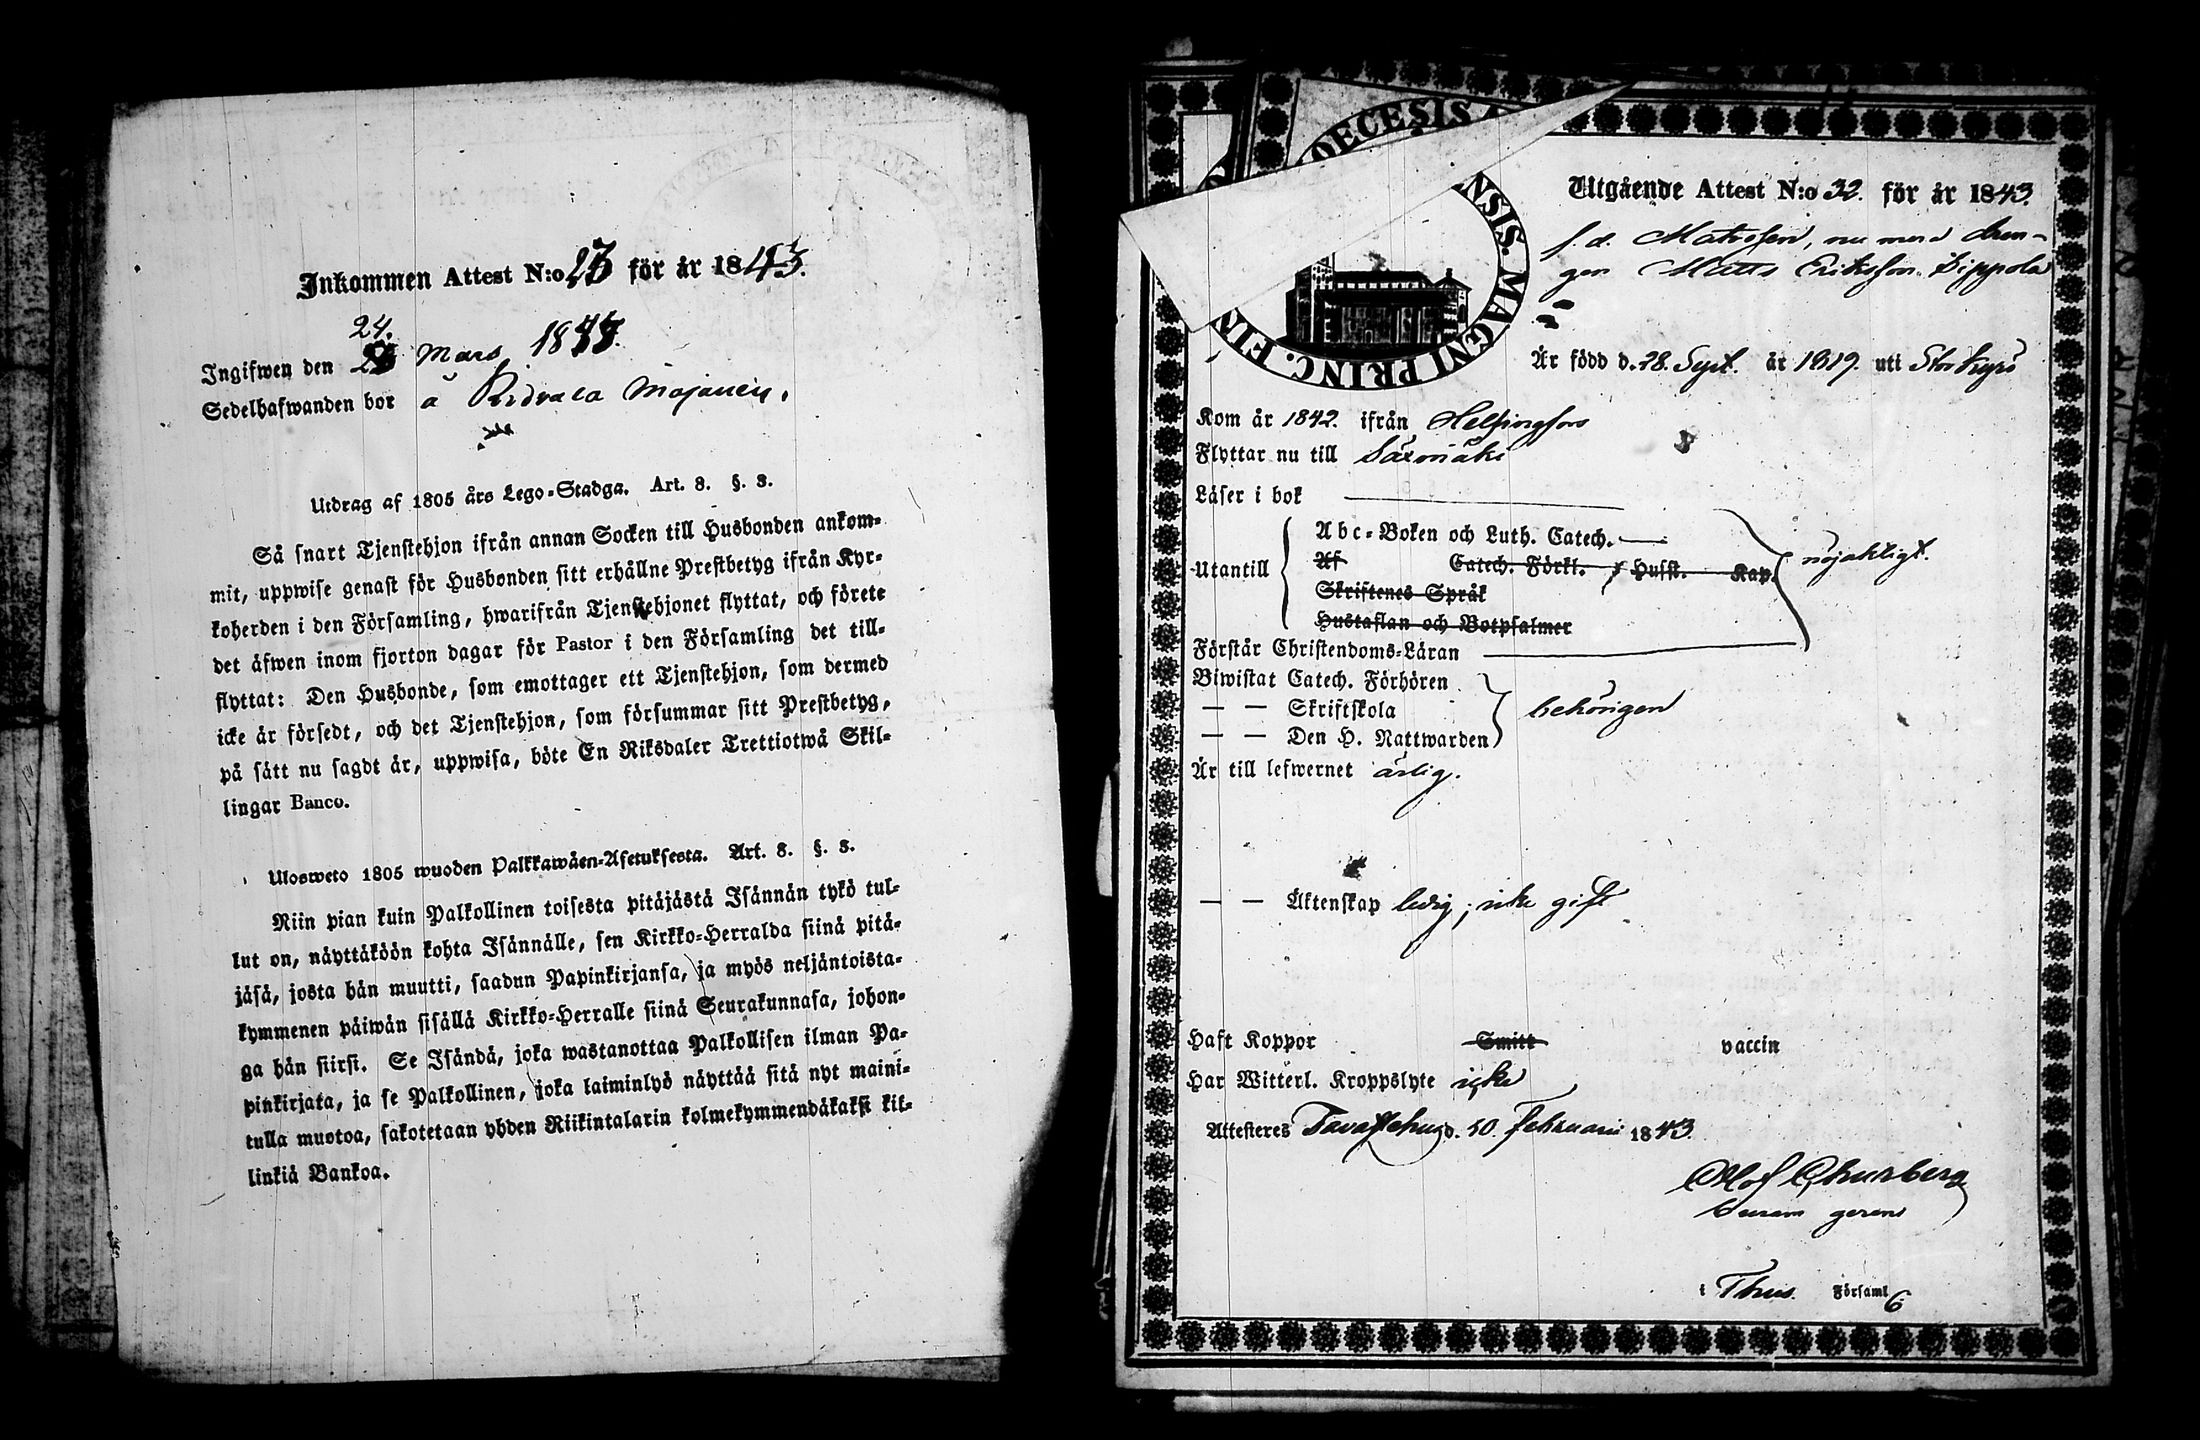 Inkommen Attest N:o 23 för år 1843.
24.
Ingifwen den Mars 1843.
Sedelhafwanden bor å
Utdrag af 1805 års Lego-Stadga. Art. 8. §. 3.
Så snart Tjenstehjon ifrån annan Socken till Husbonden ankom-
mit, uppwise genast för Husbonden sitt erhållne Prestbetyg ifrån Kyr-
koherden i den Församling, hwarifrån Tjenstehjonet flyttat, och förete
det äfwen inom fjorton dagar för Pastor i den Församling det till-
flyttat: Den Husbonde, som emottager ett Tjenstehjon, som dermed
icke är försedt, och det Tjenstehjon, som försummar sitt Prestbetyg,
på sätt nu sagdt är, uppwisa, böte En Riksdaler Trettiotwå Skil-
lingar Banco.
Ulosweto 1805 wuoden Palkkawäen-Asetuksesta. Art. 8. §. 3.
Niin pian kuin Palkollinen toisesta pitäjästä Isännän tykö tul-
lut on, näyttäköön kohta Isännälle, sen Kirkko-Herralda siinä pitä-
jäsä, josta hän muutti, saadun Papinkirjansa, ja myös neljäntoista-
kymmenen päiwän sisällä Kirkko-Herralle siinä Seurakunnasa, johon-
ga hän siirsi. Se Isändä, joka wastanottaa Palkollisen ilman Pa-
pinkirjata, ja se Palkollinen, joka laiminlyö näyttää sitä nyt maini-
tulla muotoa, sakotetaan yhden Riikintalarin kolmekymmendäkaksi kil-
linkiä Bankoa.
OECESIS
NSIS. MAGNI PRINC. FIN
Utgående Attest N:o 32. för år 1843.
f. d. Matrosen, nu mera dren-
gen Matts Eriksson Sippola
Är född d. 28. Sept. år 1819. uti Storkyro
Kom år 1842. ifrån Helsingfors
Flyttar nu till Säxmäki
Läser i bok
Utantill
Abc-Boken och Luth. Catech.
Af Catech. Förkl. Husst. Kap.
Skriftenes Språk
Hustaflan och Botpsalmer
nöjaktigt.
Förstår Christendoms-Läran
Biwistat Catech. Förhören
— — Skriftskola
— — Den H. Nattwarden
behörigen
Är till lefwernet ärlig.
— — Äktenskap ledig; icke gift
Haft Koppor Smitt vaccin
Har Witterl. Kroppslyte icke
Attesteres Tavastehus d. 10. Februarii 1843.
Olof Churberg
Curam gerens
i Thus. Församl
6